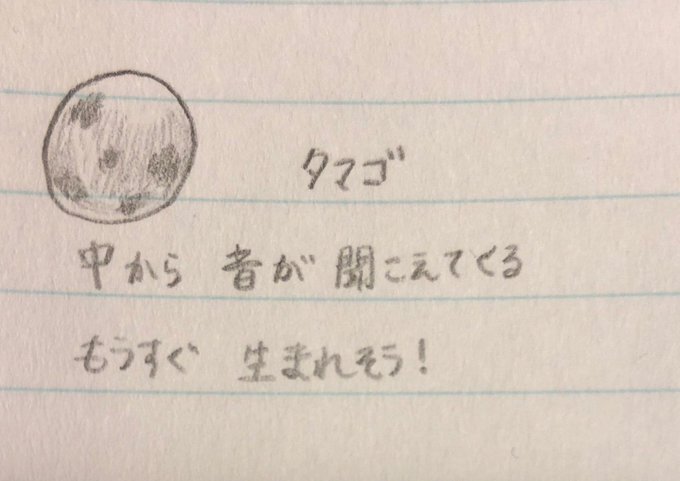 タマゴ
中から 者が 聞こえてくる
もうすぐ 生まれそう!